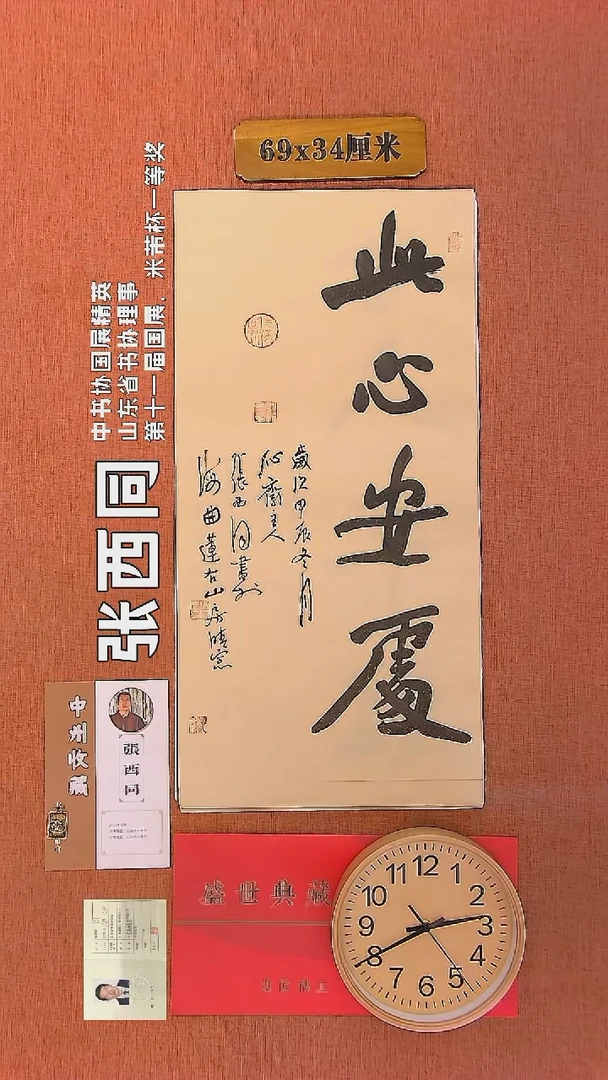 69x34厘米
此心安處
歲次甲辰冬月
沁齋主人
張西同書於
海曲蓮右山房晴窓
中书协国展精英
山东省书协理事
第十一届国展、米芾杯一等奖
张西同
中州收藏
張西同
盛世典藏
12
1
2
3
4
5
6
7
8
9
10
11